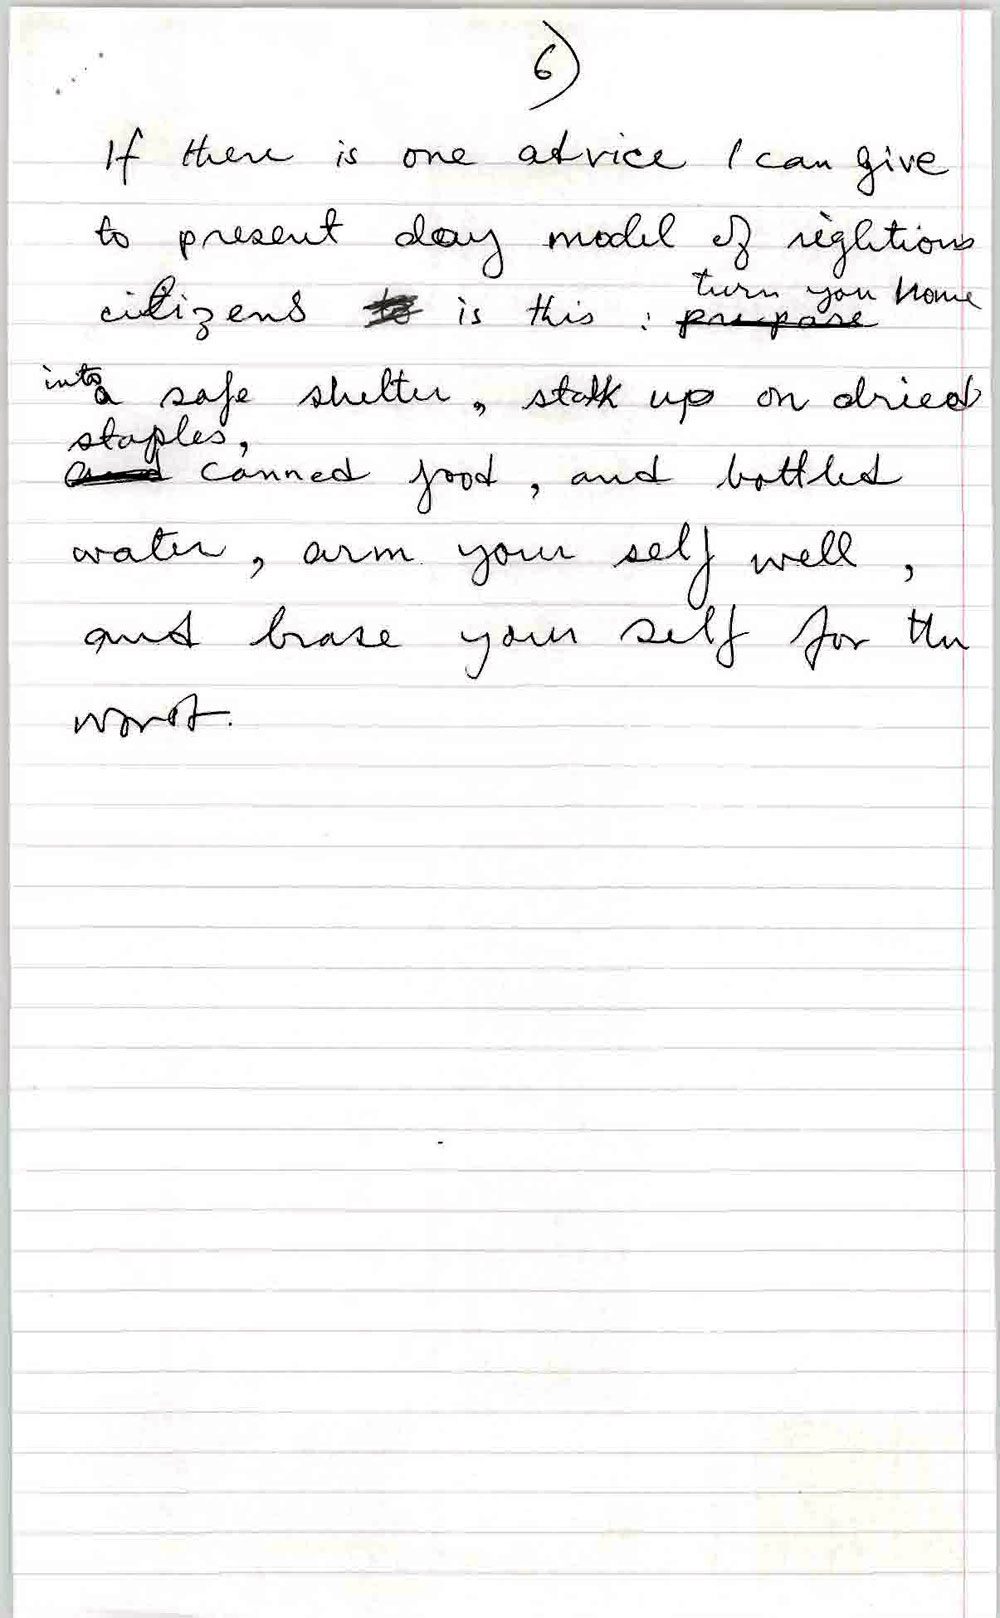 6)
If there is one advice I can give
to present day model of rightious
citizens to is this : prepare
turn you home
into a safe shelter, stok up on dried
staples,
and canned food, and bottled
water, arm your self well,
and brase your self for the
worst.